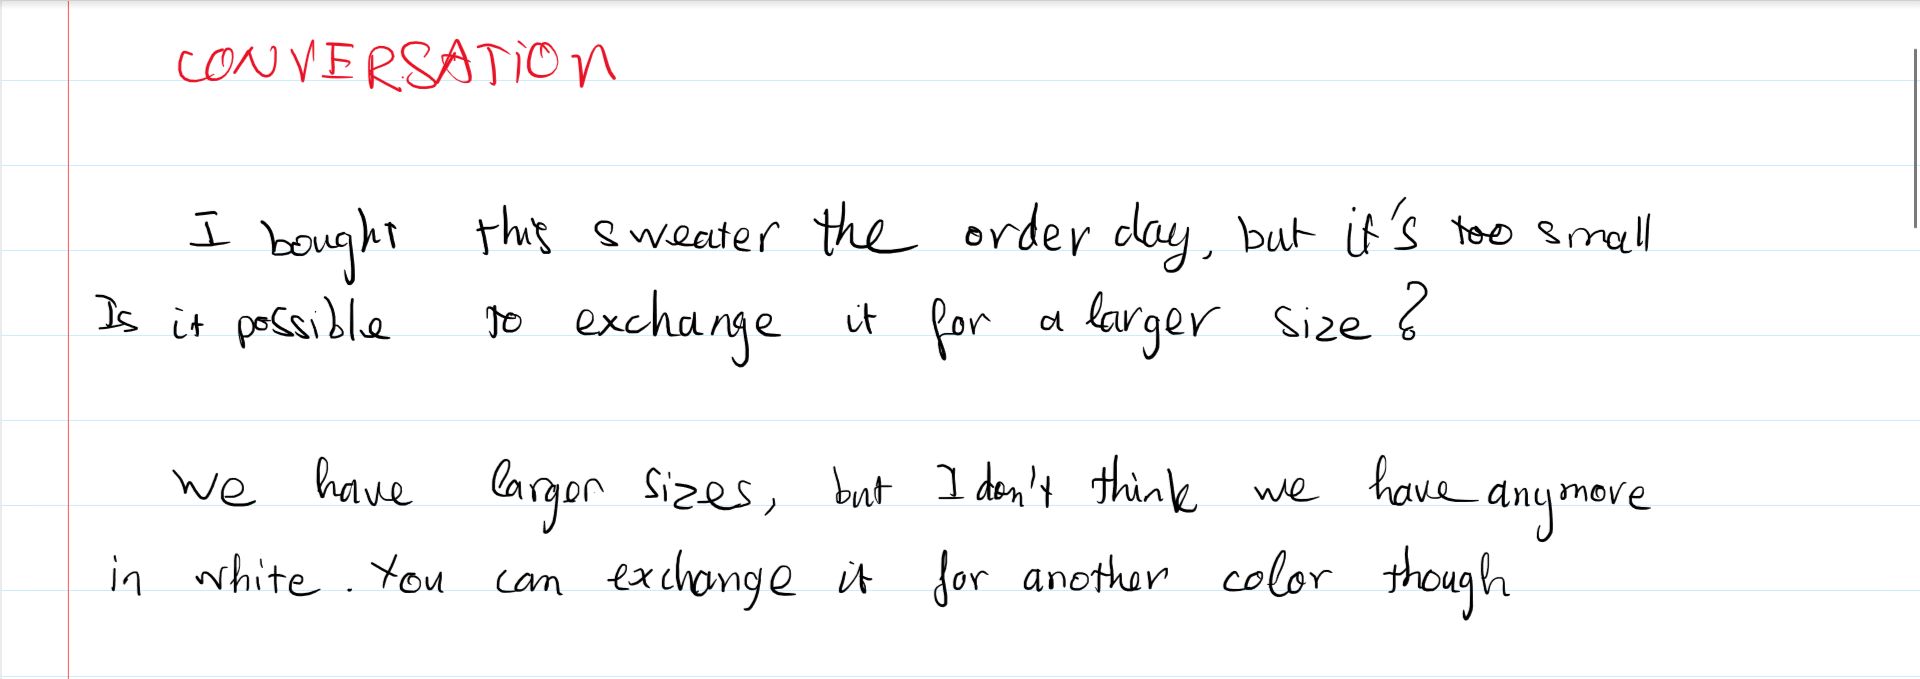 CONVERSATION
I bought this sweater the order day, but it's too small
Is it possible to exchange it for a larger size?
We have larger sizes, but I don't think we have anymore
in white. You can exchange it for another color though